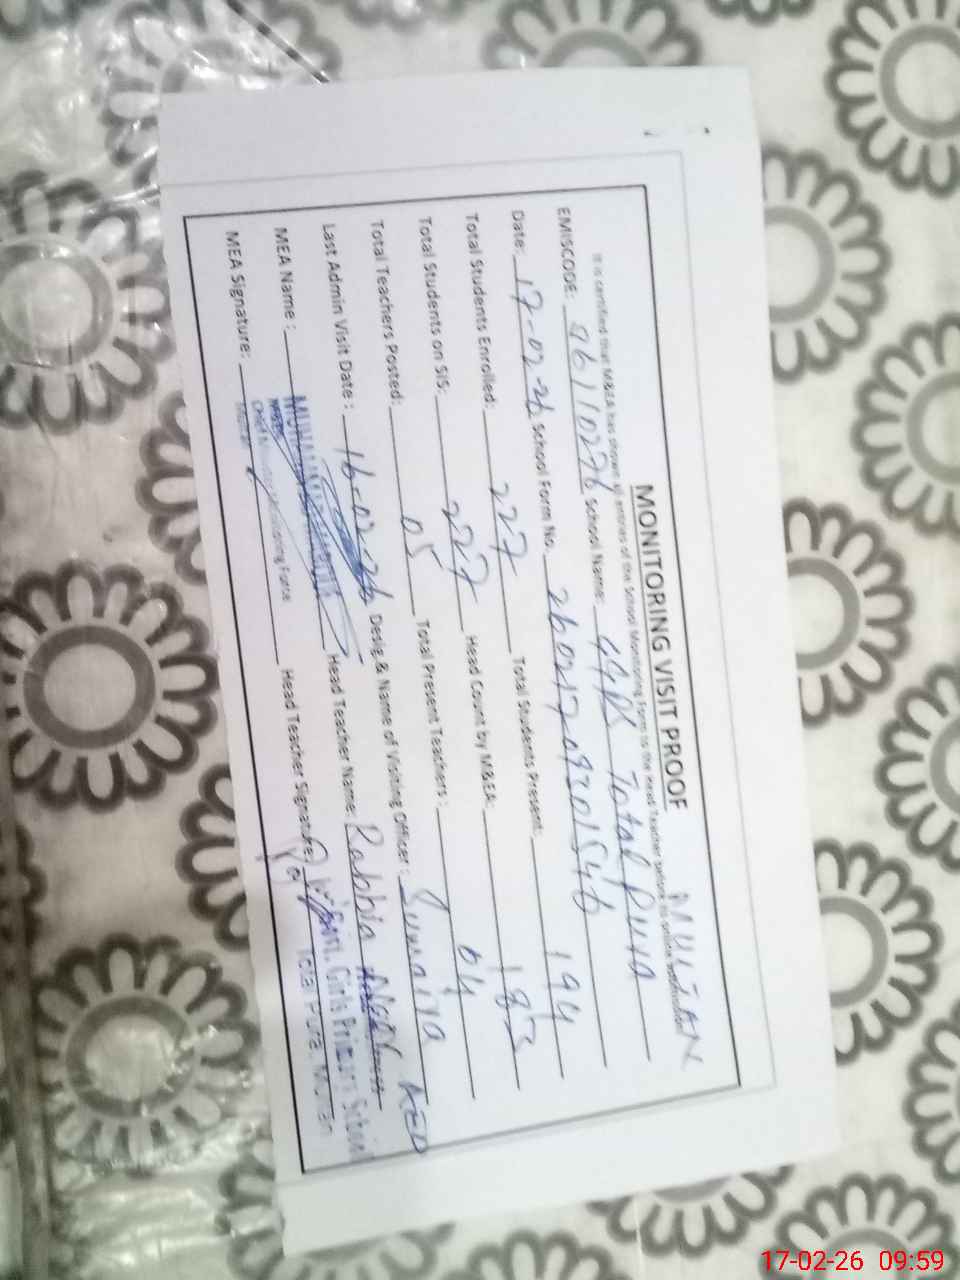 MONITORING VISIT PROOF MULTAN
It is certified that M&EA has shown all entries of the School Monitoring Form to the Head Teacher before its online submission
EMISCODE: School Name: Total Pura
Date: 17-02-26 School Form No. Total Students Present: 194
Total Students Enrolled: 227 Head Count by M&EA: 183
Total Students on SIS: 227 Total Present Teachers: 04
Total Teachers Posted: 05 Desig.& Name of Visiting Officer: Sumaira AEO
Last Admin Visit Date: 16-02-26 Head Teacher Name: Rabbia
MEA Name: Head Teacher Signature:
MEA Signature:
Monitoring Force
Govt. Girls Primary School
Total Pura, Multan
17-02-26 09:59